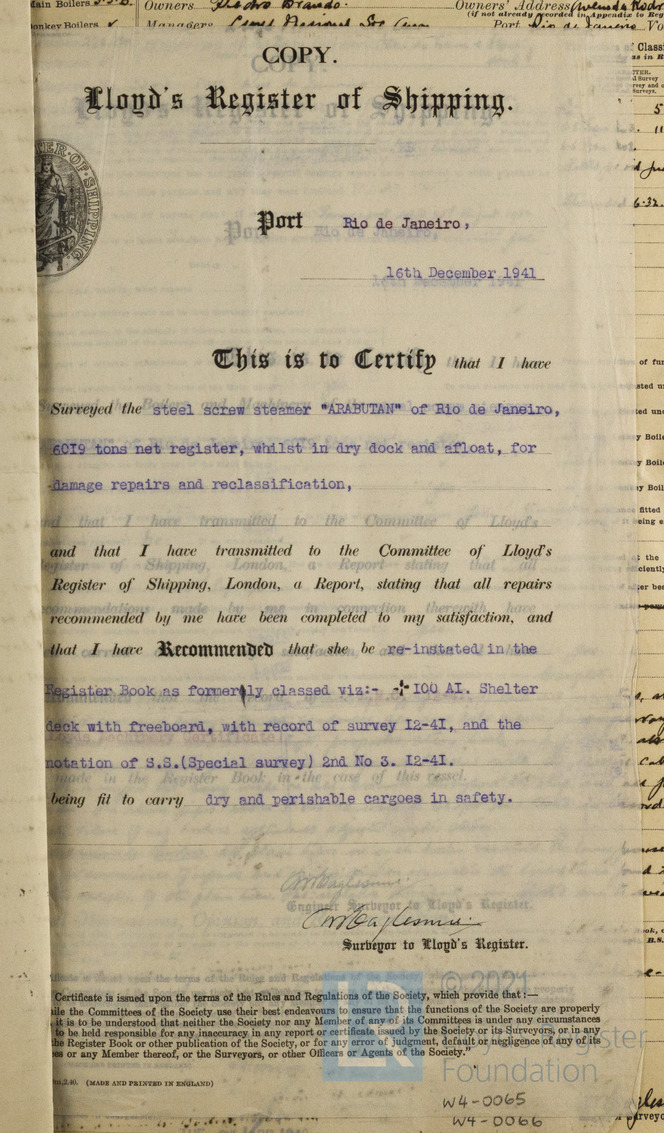 Main Boilers
Owners Pedro Brando.
Owners' Address
(if not already recorded in Appendix to Reg
Donkey Boilers
Managers
Port Rio de Janeiro
COPY.
Lloyd's Register of Shipping.
Port Rio de Janeiro,
16th December 1941
This is to Certify that I have
Surveyed the steel screw steamer "ARABUTAN" of Rio de Janeiro,
6019 tons net register, whilst in dry dock and afloat, for
damage repairs and reclassification,
and that I have transmitted to the Committee of Lloyd's
Register of Shipping, London, a Report, stating that all repairs
recommended by me have been completed to my satisfaction, and
that I have Recommended that she be re-instated in the
Register Book as formerly classed viz:- + 100 AI. Shelter
deck with freeboard, with record of survey I2-4I, and the
notation of S.S.(Special survey) 2nd No 3. I2-4I.
being fit to carry dry and perishable cargoes in safety.
Engineer Surveyor to Lloyd's Register.
Surveyor to Lloyd's Register.
Certificate is issued upon the terms of the Rules and Regulations of the Society, which provide that :—
ile the Committees of the Society use their best endeavours to ensure that the functions of the Society are properly
, it is to be understood that neither the Society nor any Member of any of its Committees is under any circumstances
to be held responsible for any inaccuracy in any report or certificate issued by the Society or its Surveyors, or in any
he Register Book or other publication of the Society, or for any error of judgment, default or negligence of any of its
es or any Member thereof, or the Surveyors, or other Officers or Agents of the Society."
2.40. (MADE AND PRINTED IN ENGLAND)
© 2021
Lloyd's Register
Foundation
W4-0065
W4-0066